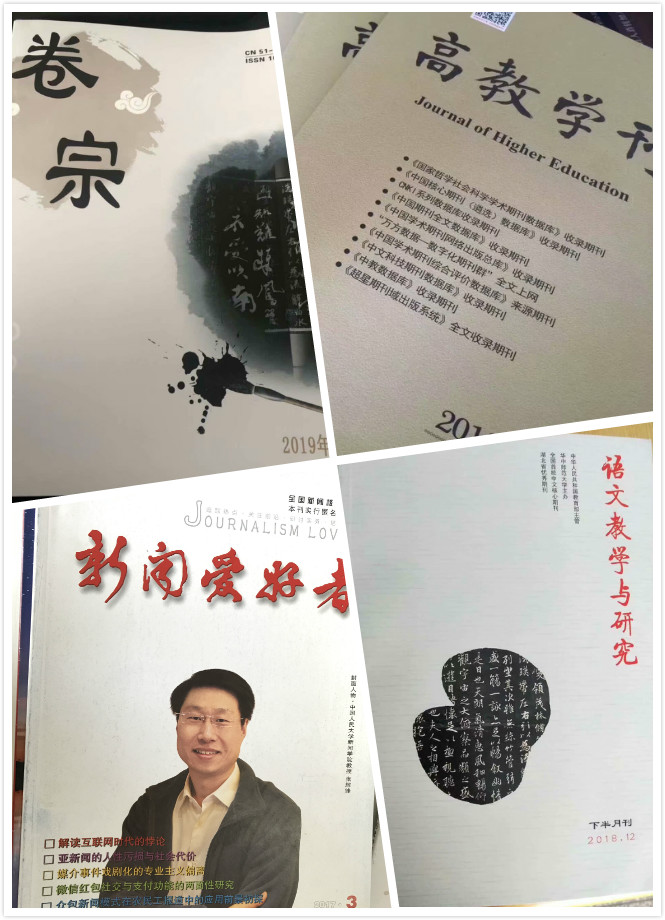 卷
宗
CN 51-
ISSN 1
2019年
高教学刊
Journal of Higher Education
《国家哲学社会科学学术期刊数据库》收录期刊
《中国核心期刊(遴选)数据库》收录期刊
CNKI系列数据库收录期刊
《中国期刊全文数据库》收录期刊
《中国学术期刊网络出版总库》收录期刊
“万方数据—数字化期刊群”全文上网
《中国学术期刊综合评价数据库》来源期刊
《中文科技期刊数据库》收录期刊
《中教数据库》收录期刊
《超星期刊域出版系统》全文收录期刊
201
全国新闻核
本刊实行匿名
JOURNALISM LOV
新闻爱好者
封面人物·中国人民大学新闻学院教授
解读互联网时代的悖论
亚新闻的人性污损与社会代价
媒介事件戏剧化的专业主义偏离
微信红包社交与支付功能的两面性研究
众包新闻模式在农民工报道中的应用前景初探
2017·3
语文教学与研究
中华人民共和国教育部主管
华中师范大学主办
全国首批中文核心期刊
湖北省优秀期刊
下半月刊
2016.12